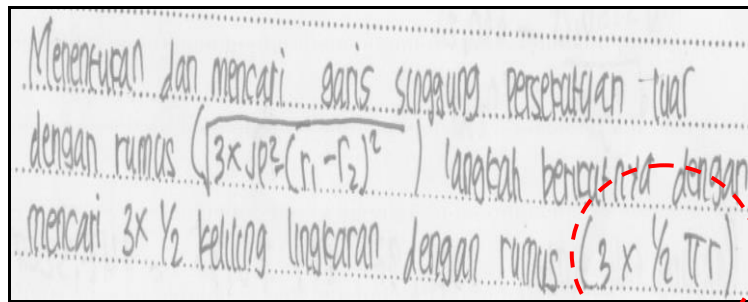 Menentukan dan mencari garis singgung persekutuan luar
dengan rumus (√3×JP²-(r₁-r₂)²) langkah berikutnya dengan
mencari 3x ½ keliling lingkaran dengan rumus (3 x ½ πr)